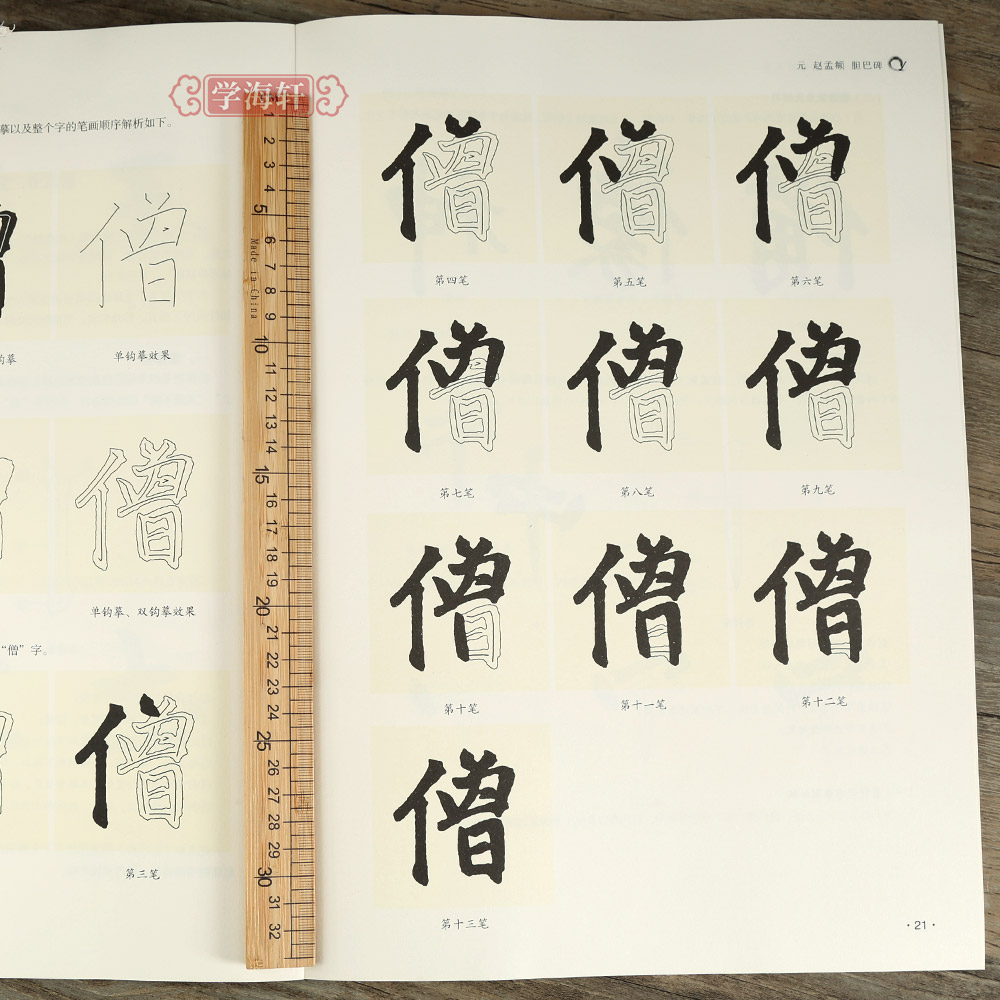 学海轩
摹以及整个字的笔画顺序解析如下。
僧
钩摹
单钩摹效果
僧
单钩摹、双钩摹效果
“僧”字。
僧
第三笔
1
2
3
4
5
6
7
8
9
10
11
12
13
14
15
16
17
18
19
20
21
22
23
24
25
26
27
28
29
30
31
32
Made in China
元 赵孟頫 胆巴碑
僧 僧 僧
第四笔 第五笔 第六笔
僧 僧 僧
第七笔 第八笔 第九笔
僧 僧 僧
第十笔 第十一笔 第十二笔
僧
第十三笔
·21·